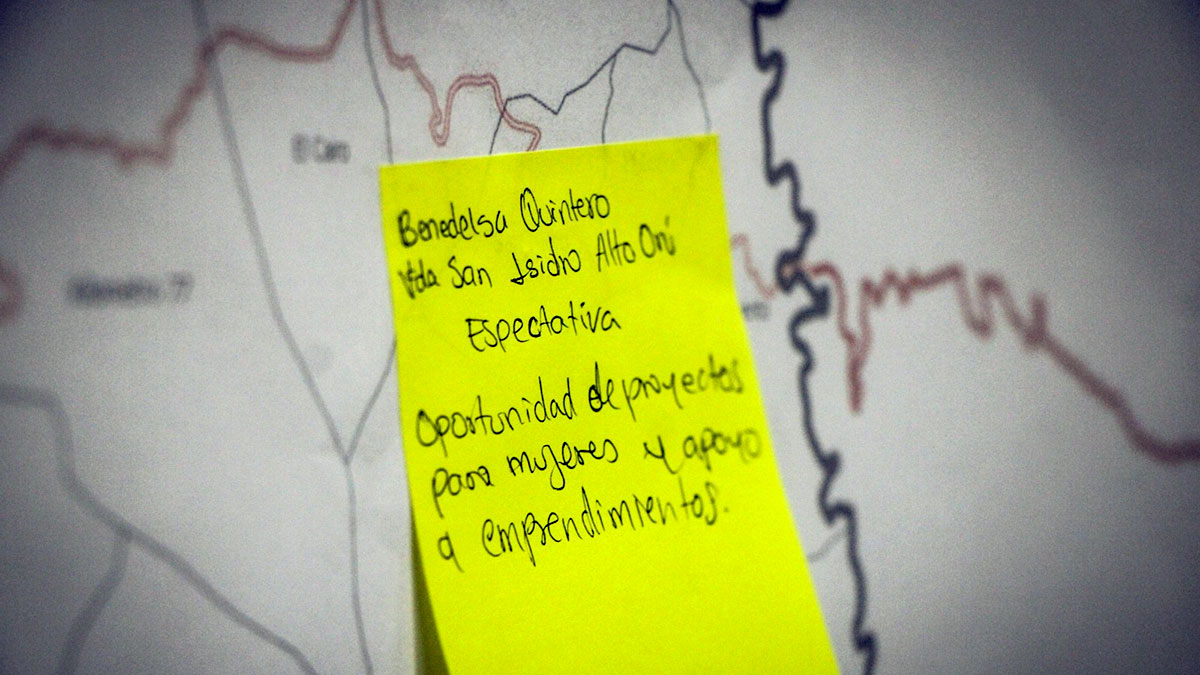 El Cairo
Kilometro 77
Benedelsa Quintero
Vda San Isidro Alto Orú
Espectativa
Oportunidad de proyectos
para mujeres y apoyo
a emprendimientos.